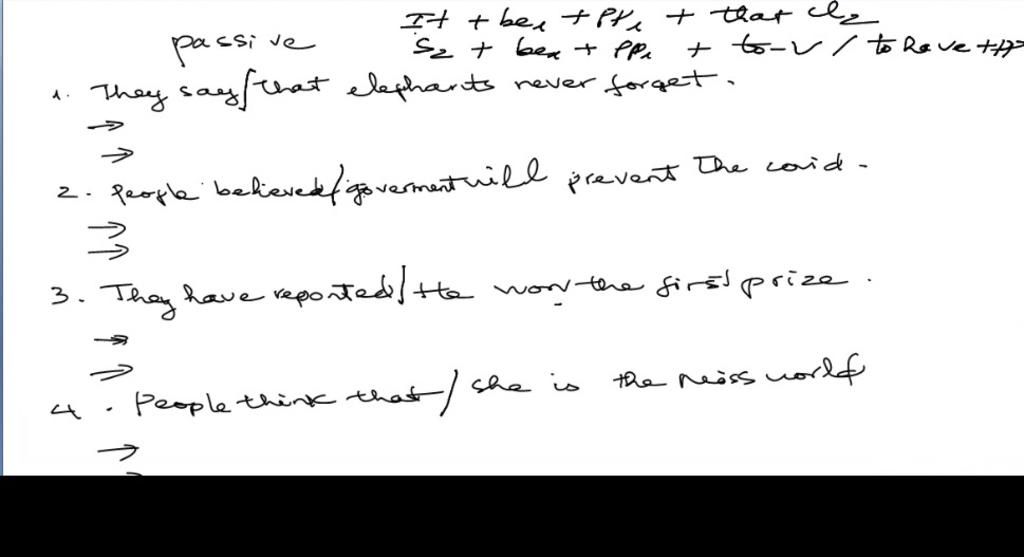 It + be₁ + PP₁ + that cl₂
passive
S₂ + be₁ + PP₁ + to-V / to have +PP
1. They say/that elephants never forget.
→
→
2. People believed/goverment will prevent the covid.
→
→
3. They have reported/He won the first prize.
→
→
4. People think that/she is the Miss world
→